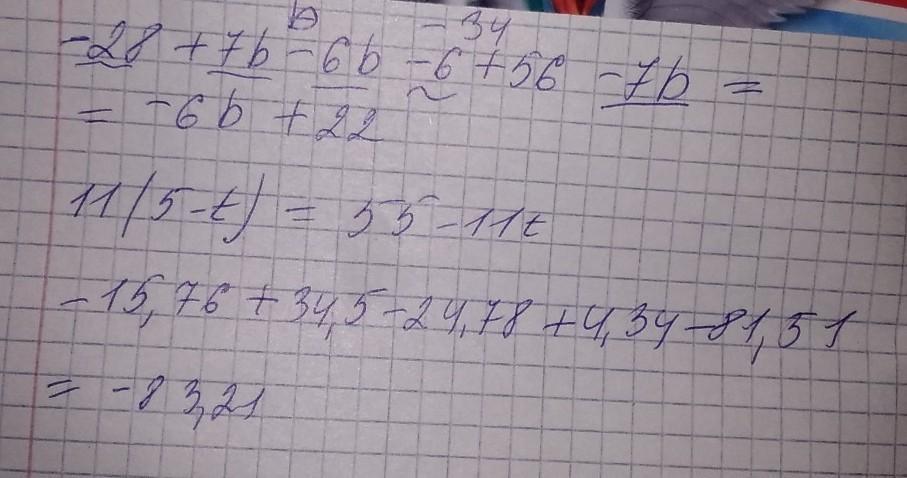 b -34
-28 + 7b - 6b - 6 + 56 - 7b =
= -6b + 22
11(5-t) = 55-11t
-15,76 + 34,5 - 24,78 + 4,34 - 81,51
= -83,21